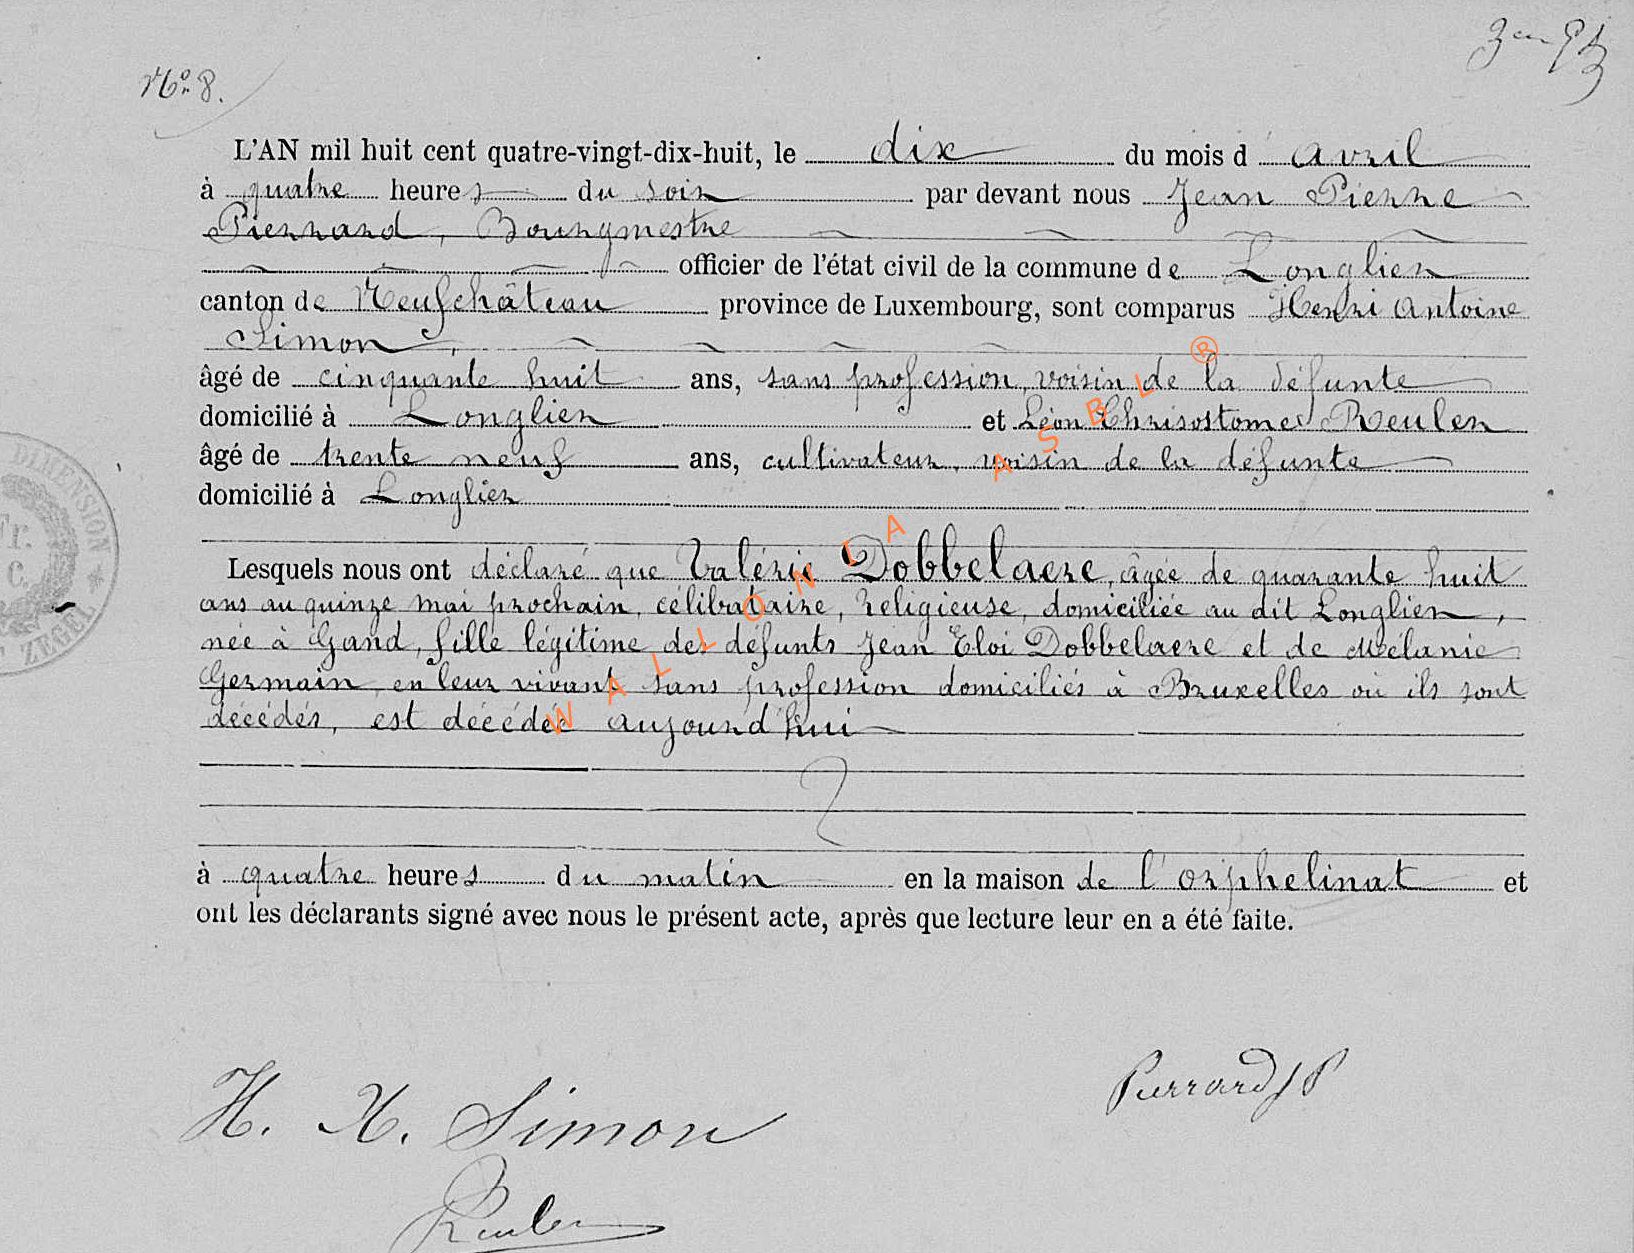 No 8.
L'AN mil huit cent quatre-vingt-dix-huit, le dix du mois d'avril
à quatre heures du soir par devant nous Jean Pierre
Pierrard, Bourgmestre
officier de l'état civil de la commune de Longlier
canton de Neufchâteau province de Luxembourg, sont comparus Henri Antoine
Simon,
âgé de cinquante huit ans, sans profession, voisin de la défunte
domicilié à Longlier et Léon Chrisostome Reulen
âgé de trente neuf ans, cultivateur, voisin de la défunte
domicilié à Longlier
Lesquels nous ont déclaré que Valérie Dobbelaere, âgée de quarante huit
ans au quinze mai prochain, célibataire, religieuse, domiciliée au dit Longlier,
née à Gand, fille légitime des défunts Jean Eloi Dobbelaere et de Mélanie
Germain, en leur vivant sans profession domiciliés à Bruxelles où ils sont
décédés, est décédée aujourd'hui
à quatre heures du matin en la maison de l'orphelinat et
ont les déclarants signé avec nous le présent acte, après que lecture leur en a été faite.
H. A. Simon
Pierrard JP
Reulen
DIMENSION
Fr.
C.
ZEGEL
WALLONIA ASBL ®